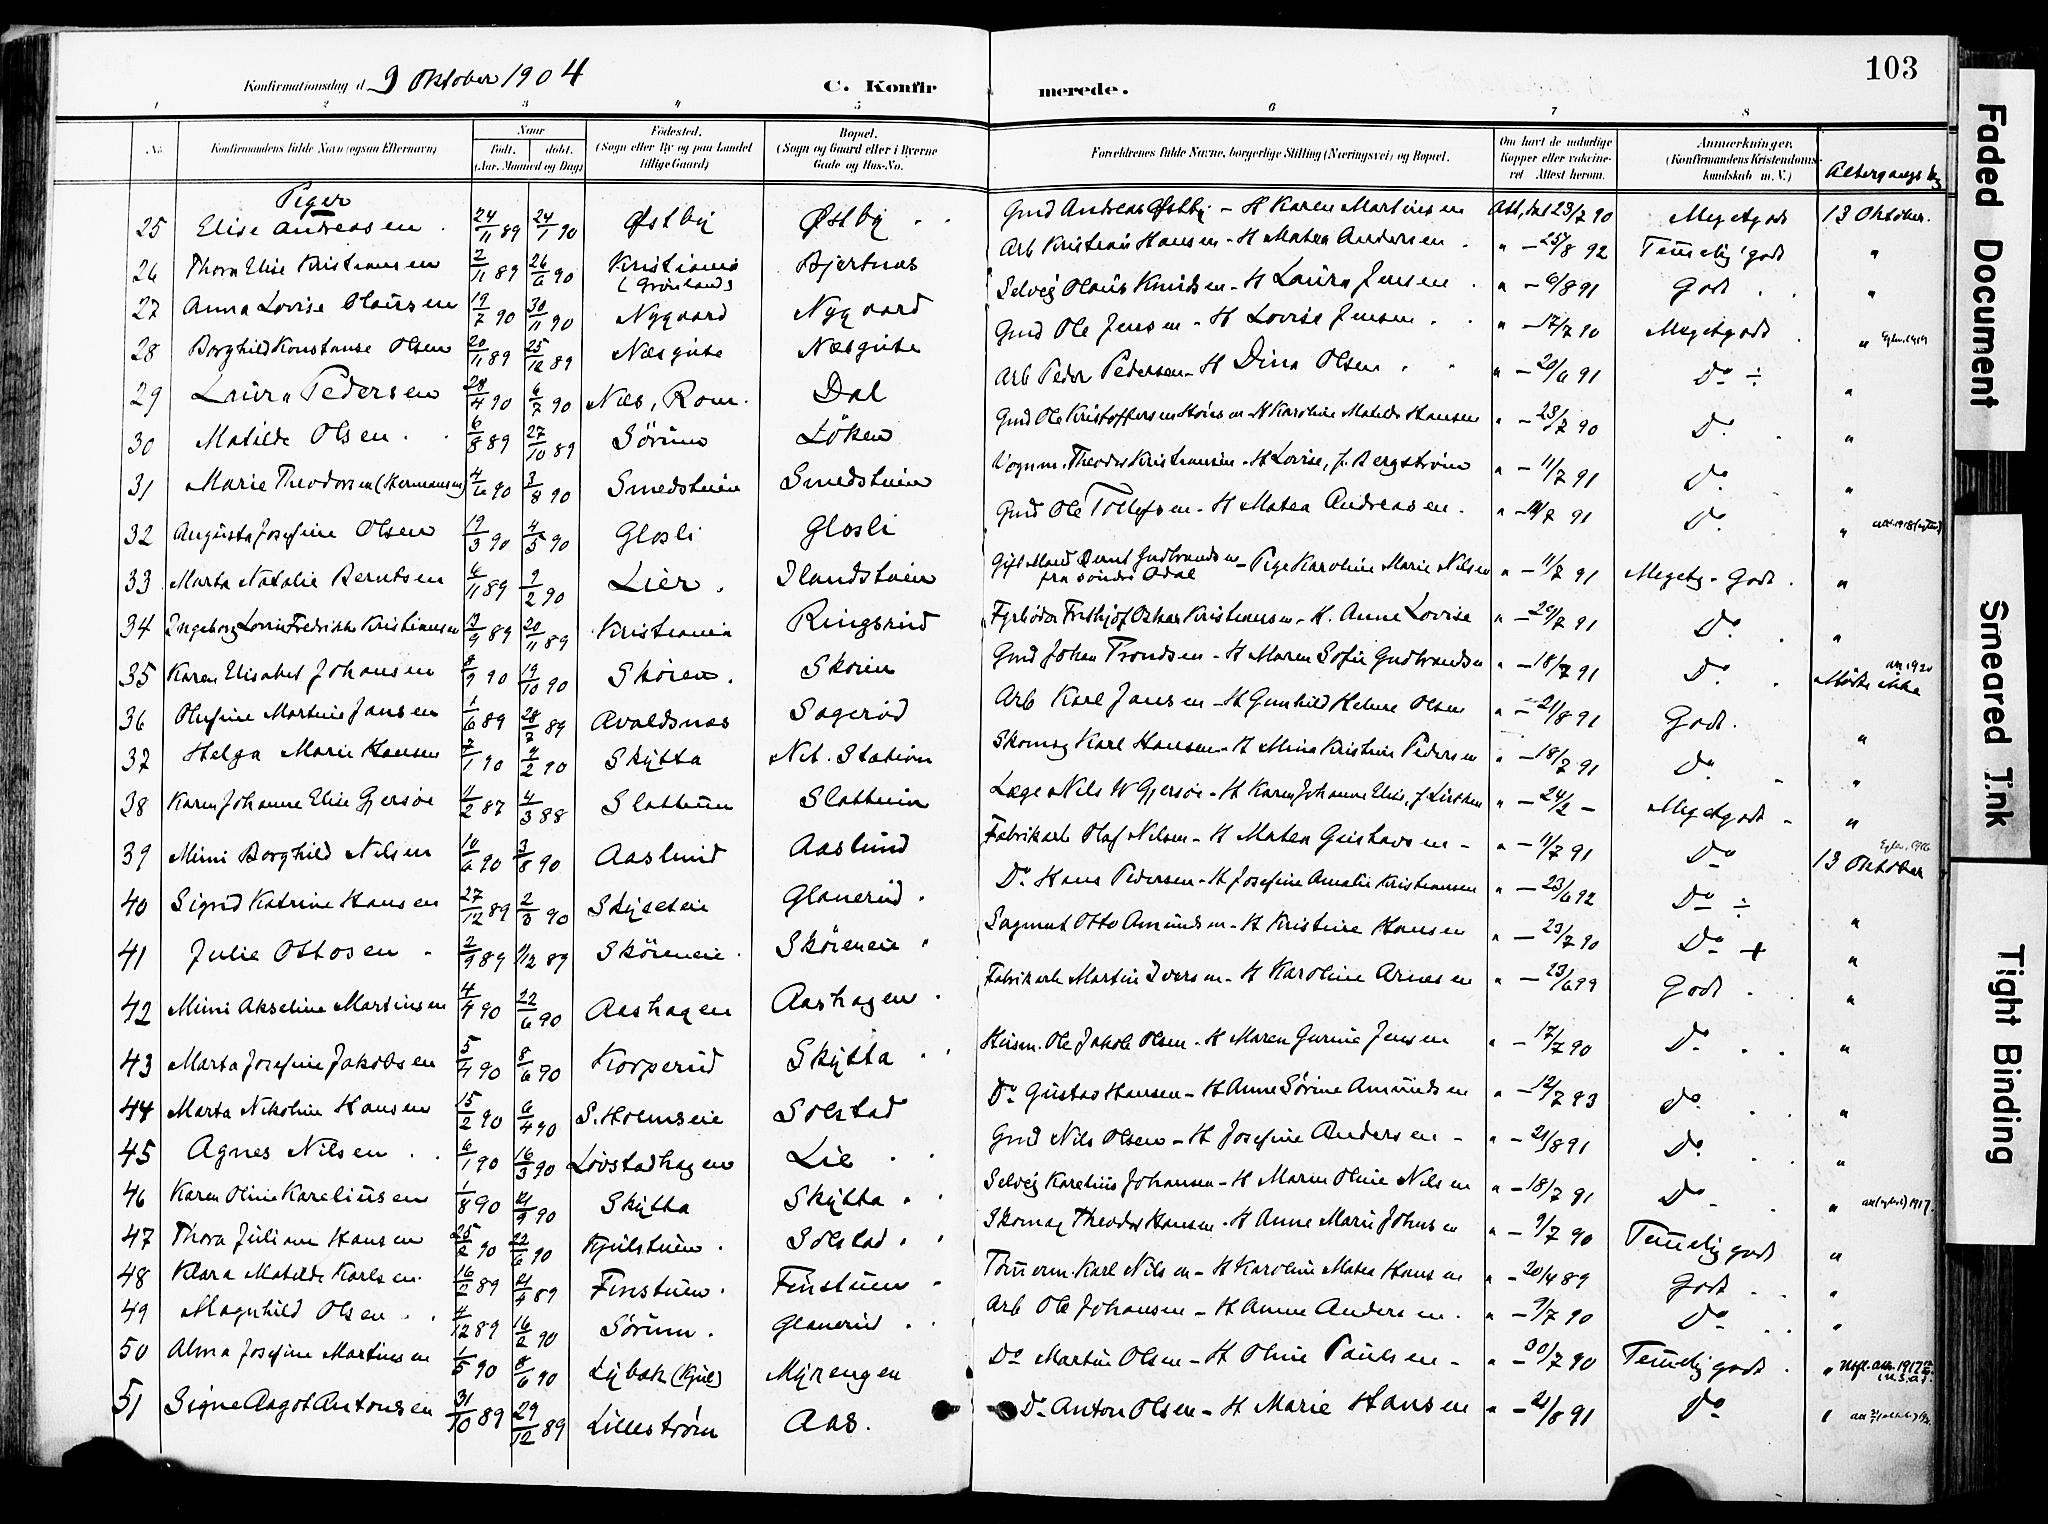 103
Konfirmationsdag d. 9 Oktober 1904 C. Konfirmerede.
1 2 3 4 5 6 7 8
No. Konfirmandens fulde Navn (ogsaa Efternavn) Naar født. døbt. (Aar, Maaned og Dag) Fødested. (Sogn eller By og paa Landet tillige Gaard) Bopæl. (Sogn og Gaard eller i Byerne Gade og Hus-No. Forældrenes fulde Navne, borgerlige Stilling (Næringsvei) og Bopæl. Om havt de naturlige Kopper eller vaksineret Attest herom. Anmærkninger. (Konfirmandens Kristendomskundskab m. V.) Altergangsdag
Piger
25 Elise Andreasen 24/11 89 24/1 90 Østby Østby Gmd Andreas Østby - H Karen Martinsen Att, dat 23/7 90 Megetgodt 13 Oktober.
26 Thora Elise Kristiansen 2/11 89 26/6 90 Kristiania (Grønlands Bjertnæs Arb Kristian Hansen - H Matea Andersen " - 25/8 92 Temelig godt "
27 Anna Lovise Olausen 19/7 90 30/11 90 Nygaard Nygaard Selvej Olaus Knudsen - H Laura Jensen " - 6/8 91 Godt "
28 Borghild Konstanse Olsen 20/11 89 25/12 89 Næsgute Næsgute Gmd Ole Jensen - H Lovise Jensen " - 17/7 90 Megetgodt "
29 Laura Pedersen 28/4 90 6/7 90 Næs, Rom. Dal Arb Peder Pedersen - H Dina Olsen " - 20/6 91 Do ÷ "
30 Matilde Olsen 6/8 89 27/10 89 Sørum Løken Gmd Ole Kristoffersen - H Karoline Matilde Hansen " - 23/7 90 Do "
31 Marie Theodorsen (Hermansen) 4/6 90 3/8 90 Smedstuen Smedstuen Vognm. Theodor Kristiansen - H Lovise, f. Bergstrøm " - 11/7 91 Do "
32 Augusta Josefine Olsen 19/3 90 4/5 90 Glosli Glosli Gmd Ole Tollefsen - H Matea Andreasen " - 11/7 91 Do "
33 Marta Natalie Berntsen 6/11 89 9/2 90 Lier Ilandstuen Gift Mand Bernt Gudbrandsen fra søndre Odal - Pige Karoline Marie Nilsen " - 11/7 91 Megetg - Godt "
34 Ingeborg Lovise Fredrikke Kristiansen 3/9 89 20/11 89 Kristiania Ringsrud Fyrbøder Frithjof Oskar Kristiansen - H. Anne Lovise " - 20/7 91 Do "
35 Karen Elisabet Johansen 8/9 90 19/10 90 Skøien Skøien Gmd Johan Trondsen - H Maren Sofie Gudbrandsen " - 18/7 91 Do Møtte ikke
36 Olufine Martine Jansen 1/6 89 28/7 89 Avaldsnæs Sagerud Arb Karl Jansen - H Gunhild Helene Olsen " - 21/8 91 Godt "
37 Helga Marie Hansen 7/1 90 4/2 90 Skytta Nit. Station Skomag Karl Hansen - H Mina Kristine Pedersen " - 18/7 91 Do "
38 Karen Johanne Elise Gjersøe 11/2 87 4/3 88 Slattum Slattum Læge Nils W Gjersøe - H Karen Johanne Elise, f. " - 24/2 - Megetgodt "
39 Mimi Borghild Nilsen 10/6 90 3/8 90 Aaslund Aaslund Fabrikarb Olaf Nilsen - H Matea Gustavsen " - 11/7 91 Do 13 Oktober
40 Sigrid Katrine Hansen 27/12 89 2/3 90 Glanerud Do Hans Pedersen - H Josefine Amalie Kristiansen " - 23/6 92 Do ÷ "
41 Julie Ottosen 2/9 89 1/12 89 Skøieneie Skøieneie Sagmut Otto Amundsen - H Kristine Hansen " - 23/7 90 Do + "
42 Mimi Akseline Martinsen 4/4 90 22/6 90 Aashagen Aashagen Fabrikarb Martin Iversen - H Karoline Arnesen " - 23/6 99 Godt "
43 Marta Josefine Jakobsen 5/4 90 8/6 90 Korperud Skytta Husm. Ole Jakob Olsen - H Maren Gurine Jensen " - 17/7 90 Do "
44 Marta Nikoline Hansen 15/2 90 6/4 90 S. Holmseie Solstad Do Gustav Hansen - H Anne Sørine Amundsen " - 12/7 93 Do "
45 Agnes Nilsen 6/1 90 16/3 90 Løvstadhagen Lie Gmd Nils Olsen - H Josefine Andersen " - 21/8 91 Do "
46 Karen Oline Kareliusen 1/8 90 21/9 90 Skytta Skytta Selvej Karelius Johansen - H Maren Oline Nilsen " - 18/7 91 Do "
47 Thora Juliane Hansen 25/2 90 22/6 90 Kjulstuen Solstad Skomag Theodor Hansen - H Anne Marie Johnsen " - 9/7 90 Temelig godt "
48 Klara Matilde Karlsen 16/2 89 21/4 89 Finstuen Finstuen Tømerm. Karl Nilsen - H Karoline Matea Hansen " - 20/4 89 Godt "
49 Magnhild Olsen 4/12 89 16/2 90 Sørum Glanerud Arb Ole Johansen - H Anne Andersen " - 9/7 90 Do "
50 Alma Josefine Martinsen 1/5 90 8/6 90 Lybæk (Kjul) Myrengen Do Martin Olsen - H Oline Paulsen " - 30/7 90 Temelig godt "
51 Signe Aagot Antonsen 31/10 89 29/12 89 Lillestrøm Aas. Do Anton Olsen - H Marie Hansen " - 21/8 91 Do "
Faded Document
Smeared Ink
Tight Binding